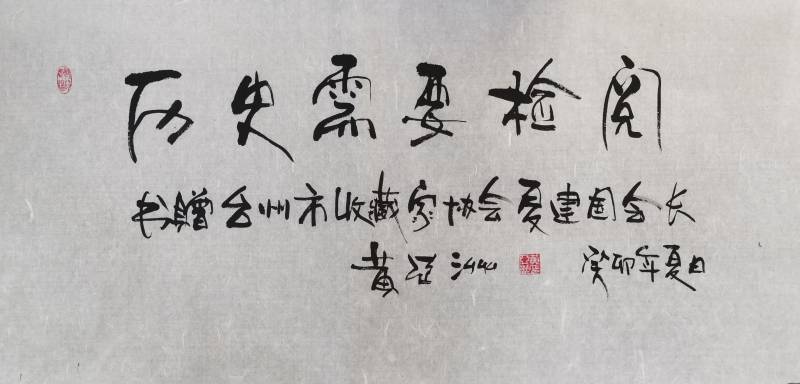 历史需要检阅
书赠台州市收藏家协会夏建国会长
黄亚洲 癸卯年夏日